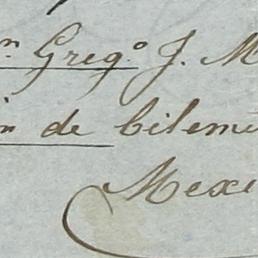 n. Greg.º J. M
n de bileme
Mexi